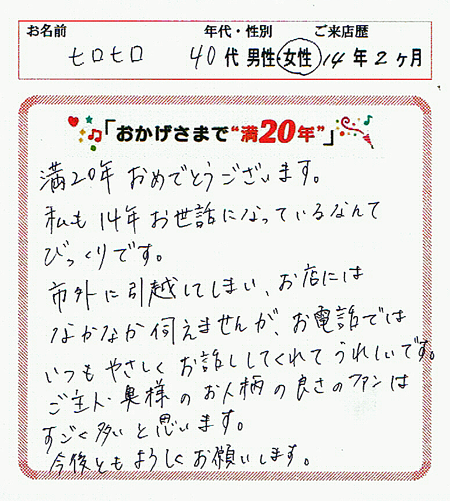 お名前 年代・性別 ご来店歴
ヒロヒロ 40代 男性・女性 14年2ヶ月
「おかげさまで“満20年”」
満20年おめでとうございます。
私も14年お世話になっているなんて
びっくりです。
市外に引越してしまい、お店には
なかなか伺えませんが、お電話では
いつもやさしくお話ししてくれてうれしいです。
ご主人・奥様のお人柄の良さのファンは
すごく多いと思います。
今後ともよろしくお願いします。